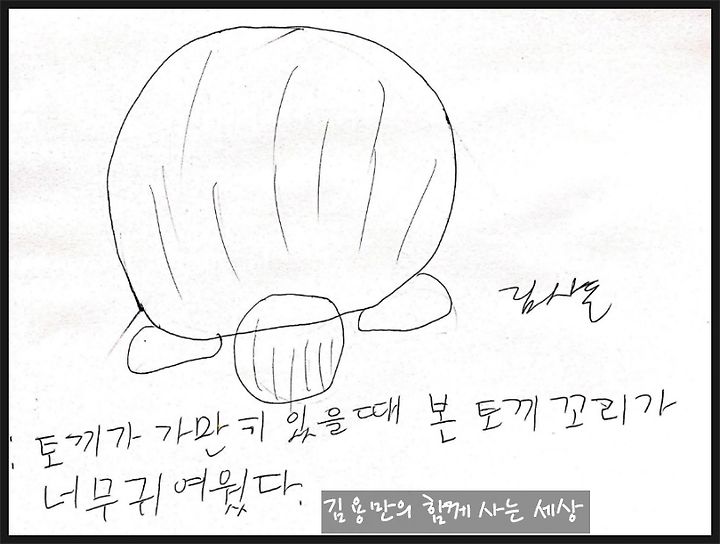 김사돌
: 토끼가 가만키 있을때 본 토끼 꼬리가
너무 귀여웠다.
김용만의 함께 사는 세상